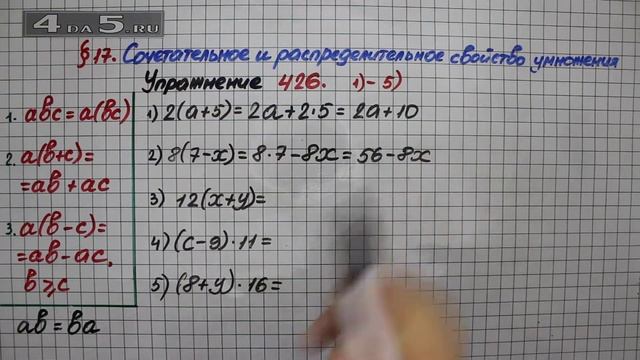 4DA5.RU
§ 17. Сочетательное и распределительное свойство умножения
Упражнение 426. 1)-5)
1. abc = a(bc)
2. a(b+c)=
=ab+ac
3. a(b-c)=
=ab-ac,
b⩾c
ab=ba
1) 2(a+5)=2a+2·5=2a+10
2) 8(7-x)=8·7-8x=56-8x
3) 12(x+y)=
4) (c-9)·11=
5) (8+y)·16=